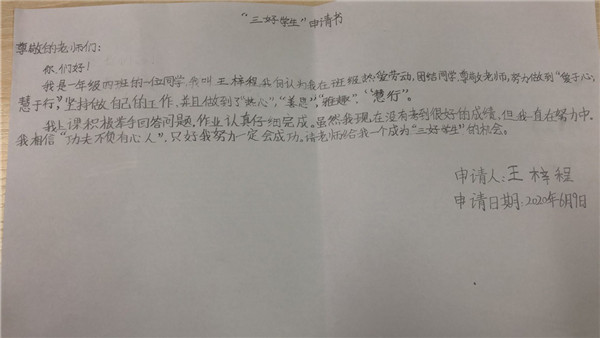 “三好学生”申请书
尊敬的老师们:
你们好!
我是一年级四班的一位同学,我叫王梓程,我自认为我在班级热爱劳动,团结同学,尊敬老师,努力做到“蕙于心,
慧于行”,坚持做自己的工作、并且做到了“共心”,“善思”,“雅趣”,“慧行”。
我上课积极举手回答问题,作业认真仔细完成。虽然我现在没有考到很好的成绩,但我一直在努力中。
我相信“功夫不负有心人”,只好我努力一定会成功。请老师给我一个成为“三好学生”的机会。
申请人:王梓程
申请日期:2020年6月9日